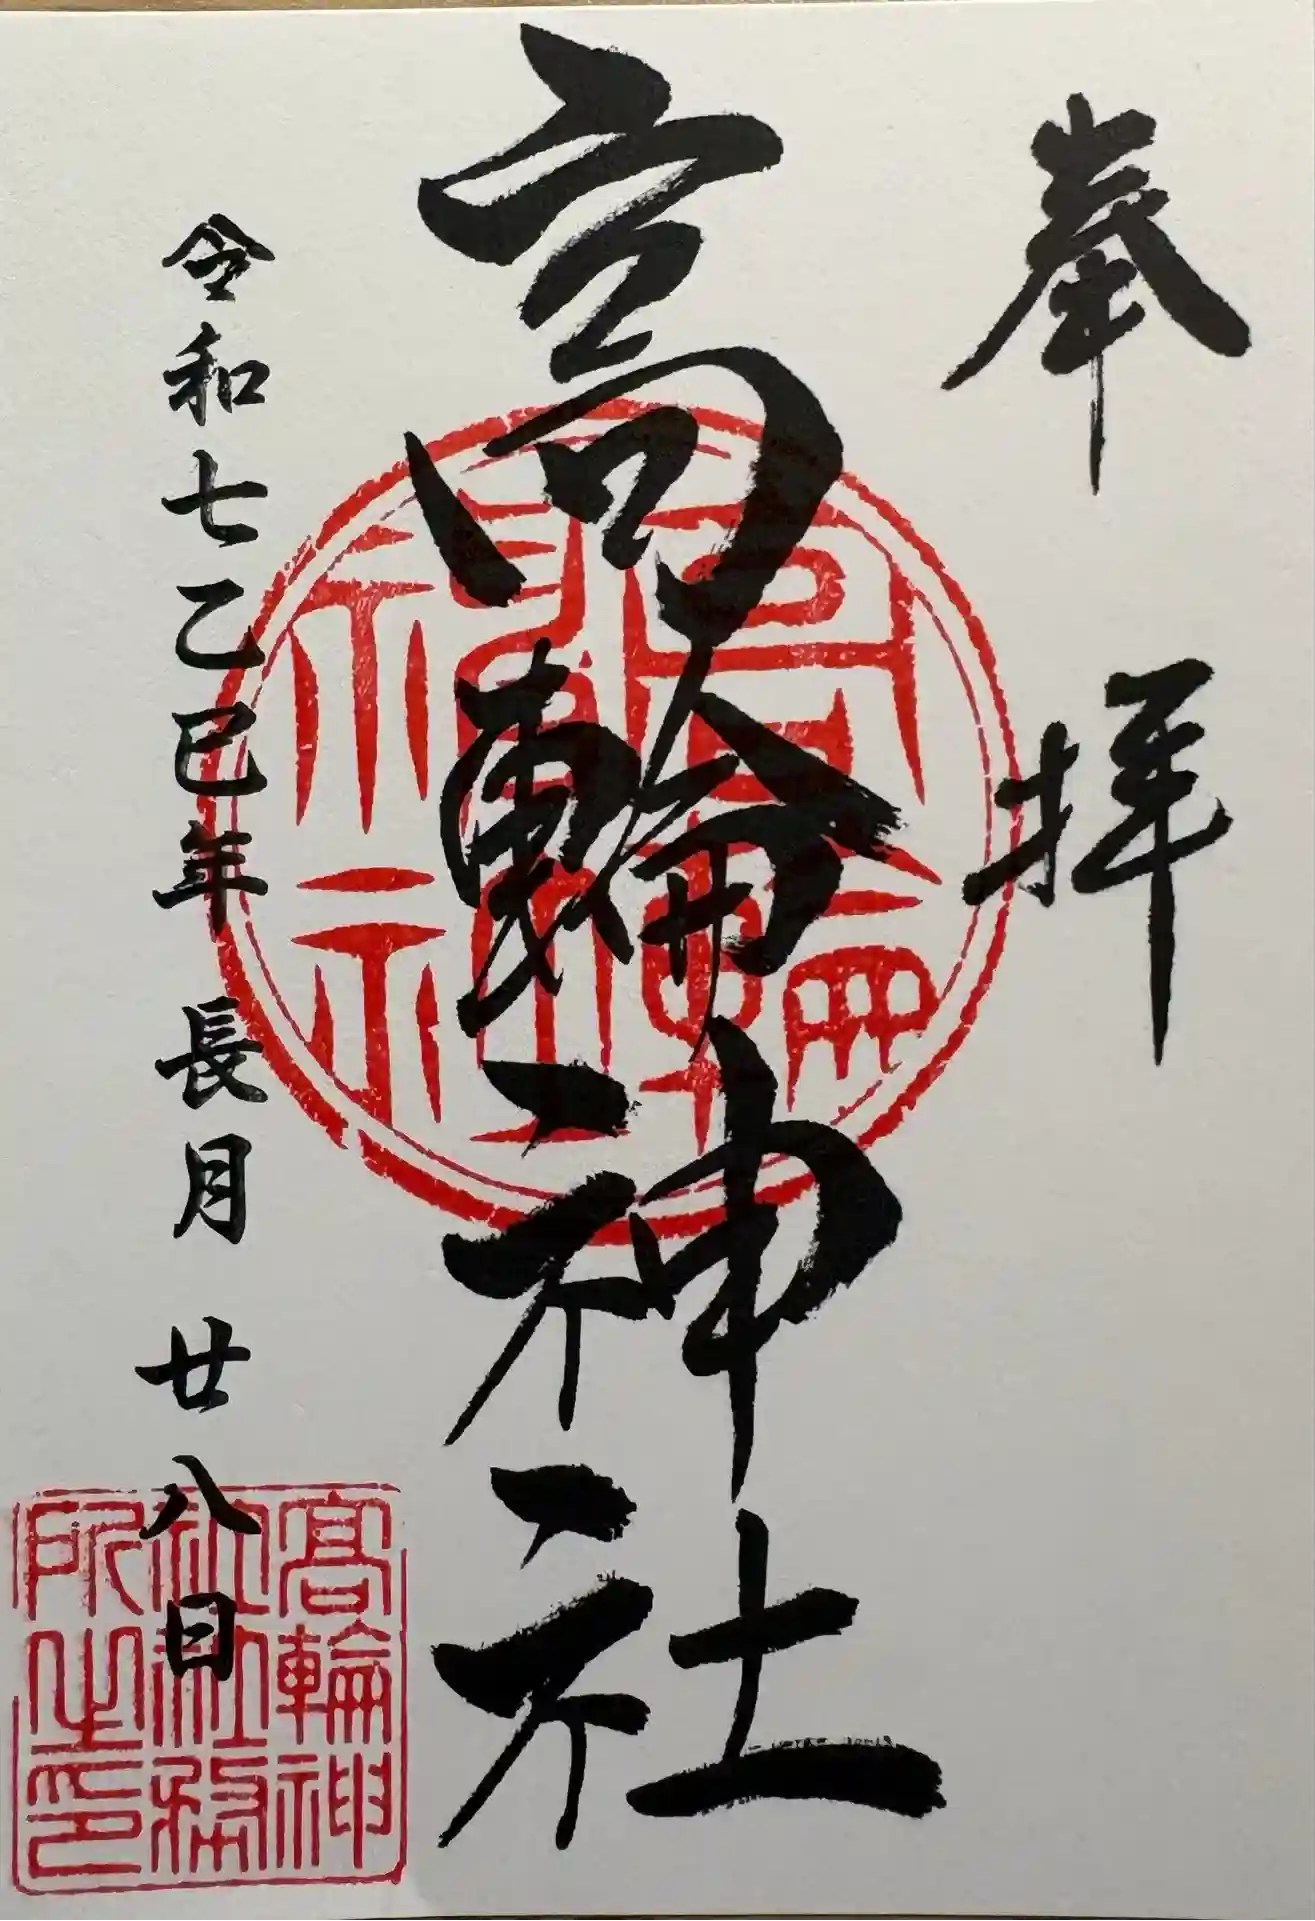 奉拝
高輪神社
令和七乙巳年 長月 廿八日
高輪神社
高輪神
社社務
所之印